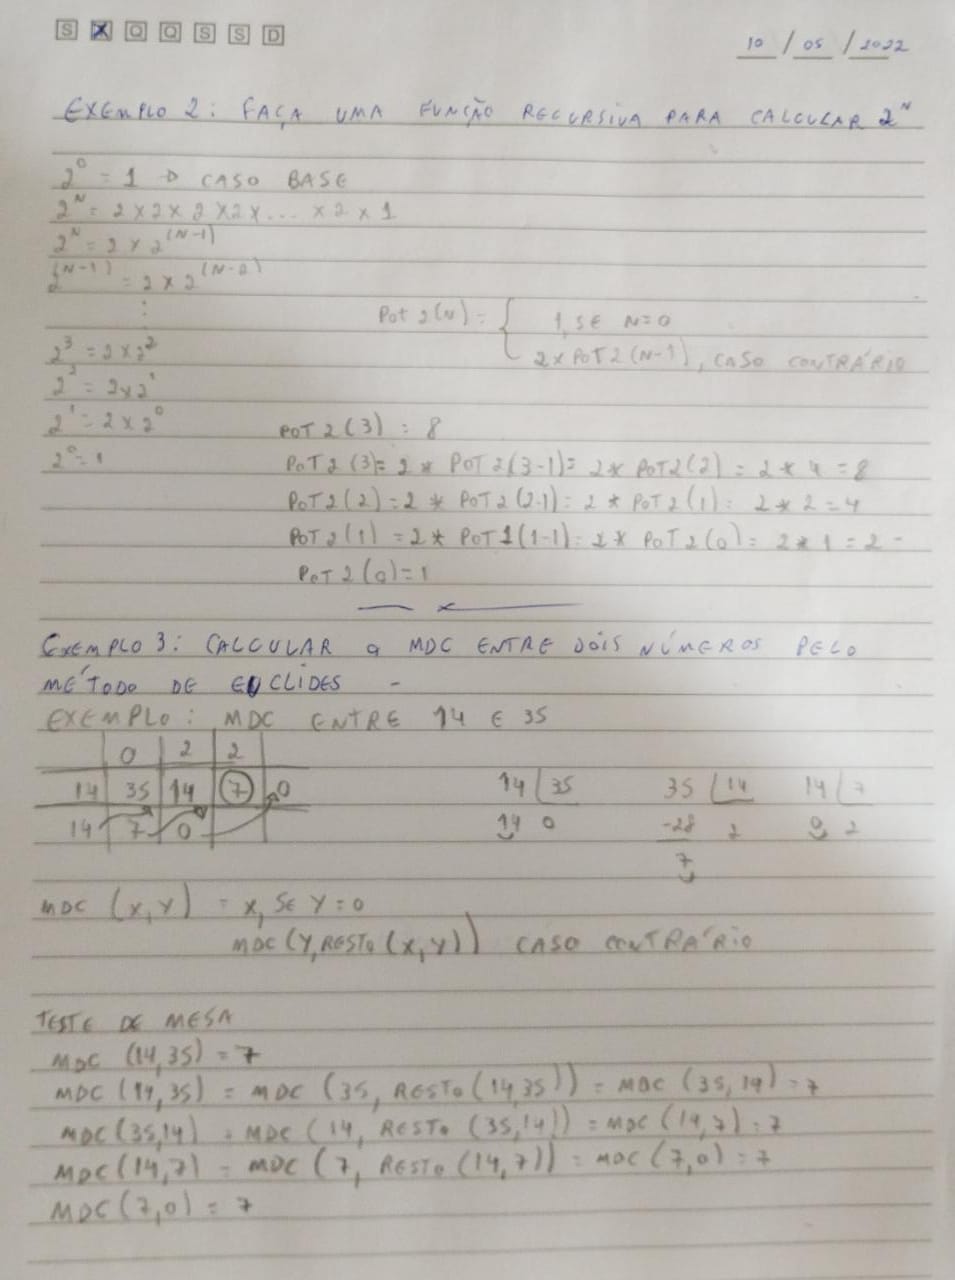 S X Q Q S S D
10 / 05 / 2022
EXEMPLO 2: FAÇA UMA FUNÇÃO RECURSIVA PARA CALCULAR 2^N
2^0 = 1 → CASO BASE
2^N = 2 x 2 x 2 x 2 x ... x 2 x 1
2^N = 2 x 2^(N-1)
2^(N-1) = 2 x 2^(N-2)
⋮
POT 2(N) = { 1, SE N=0
2 x POT 2 (N-1), CASO CONTRÁRIO
2^3 = 2 x 2^2
2^2 = 2 x 2^1
2^1 = 2 x 2^0
2^0 = 1
POT 2 (3) = 8
POT 2 (3) = 2 * POT 2(3-1) = 2 * POT2(2) = 2 * 4 = 8
POT 2 (2) = 2 * POT 2 (2-1) = 2 * POT 2 (1) = 2 * 2 = 4
POT 2 (1) = 2 * POT 1(1-1) = 2 * POT 2 (0) = 2 * 1 = 2 -
POT 2 (0) = 1
EXEMPLO 3: CALCULAR a MDC ENTRE DOIS NÚMEROS PELO
MÉTODO DE EUCLIDES -
EXEMPLO: MDC ENTRE 14 E 35
0 2 2
14 35 14 7 0
14 7 0
14 | 35
14 0
35 | 14
-28 2
7
14 | 7
0 2
MDC (X,Y) = X, SE Y = 0
MDC (Y, RESTO (X,Y)) CASO CONTRÁRIO
TESTE DE MESA
MDC (14,35) = 7
MDC (14,35) = MDC (35, RESTO (14,35)) = MDC (35,14) = 7
MDC (35,14) = MDC (14, RESTO (35,14)) = MDC (14,7) = 7
MDC (14,7) = MDC (7, RESTO (14,7)) = MDC (7,0) = 7
MDC (7,0) = 7